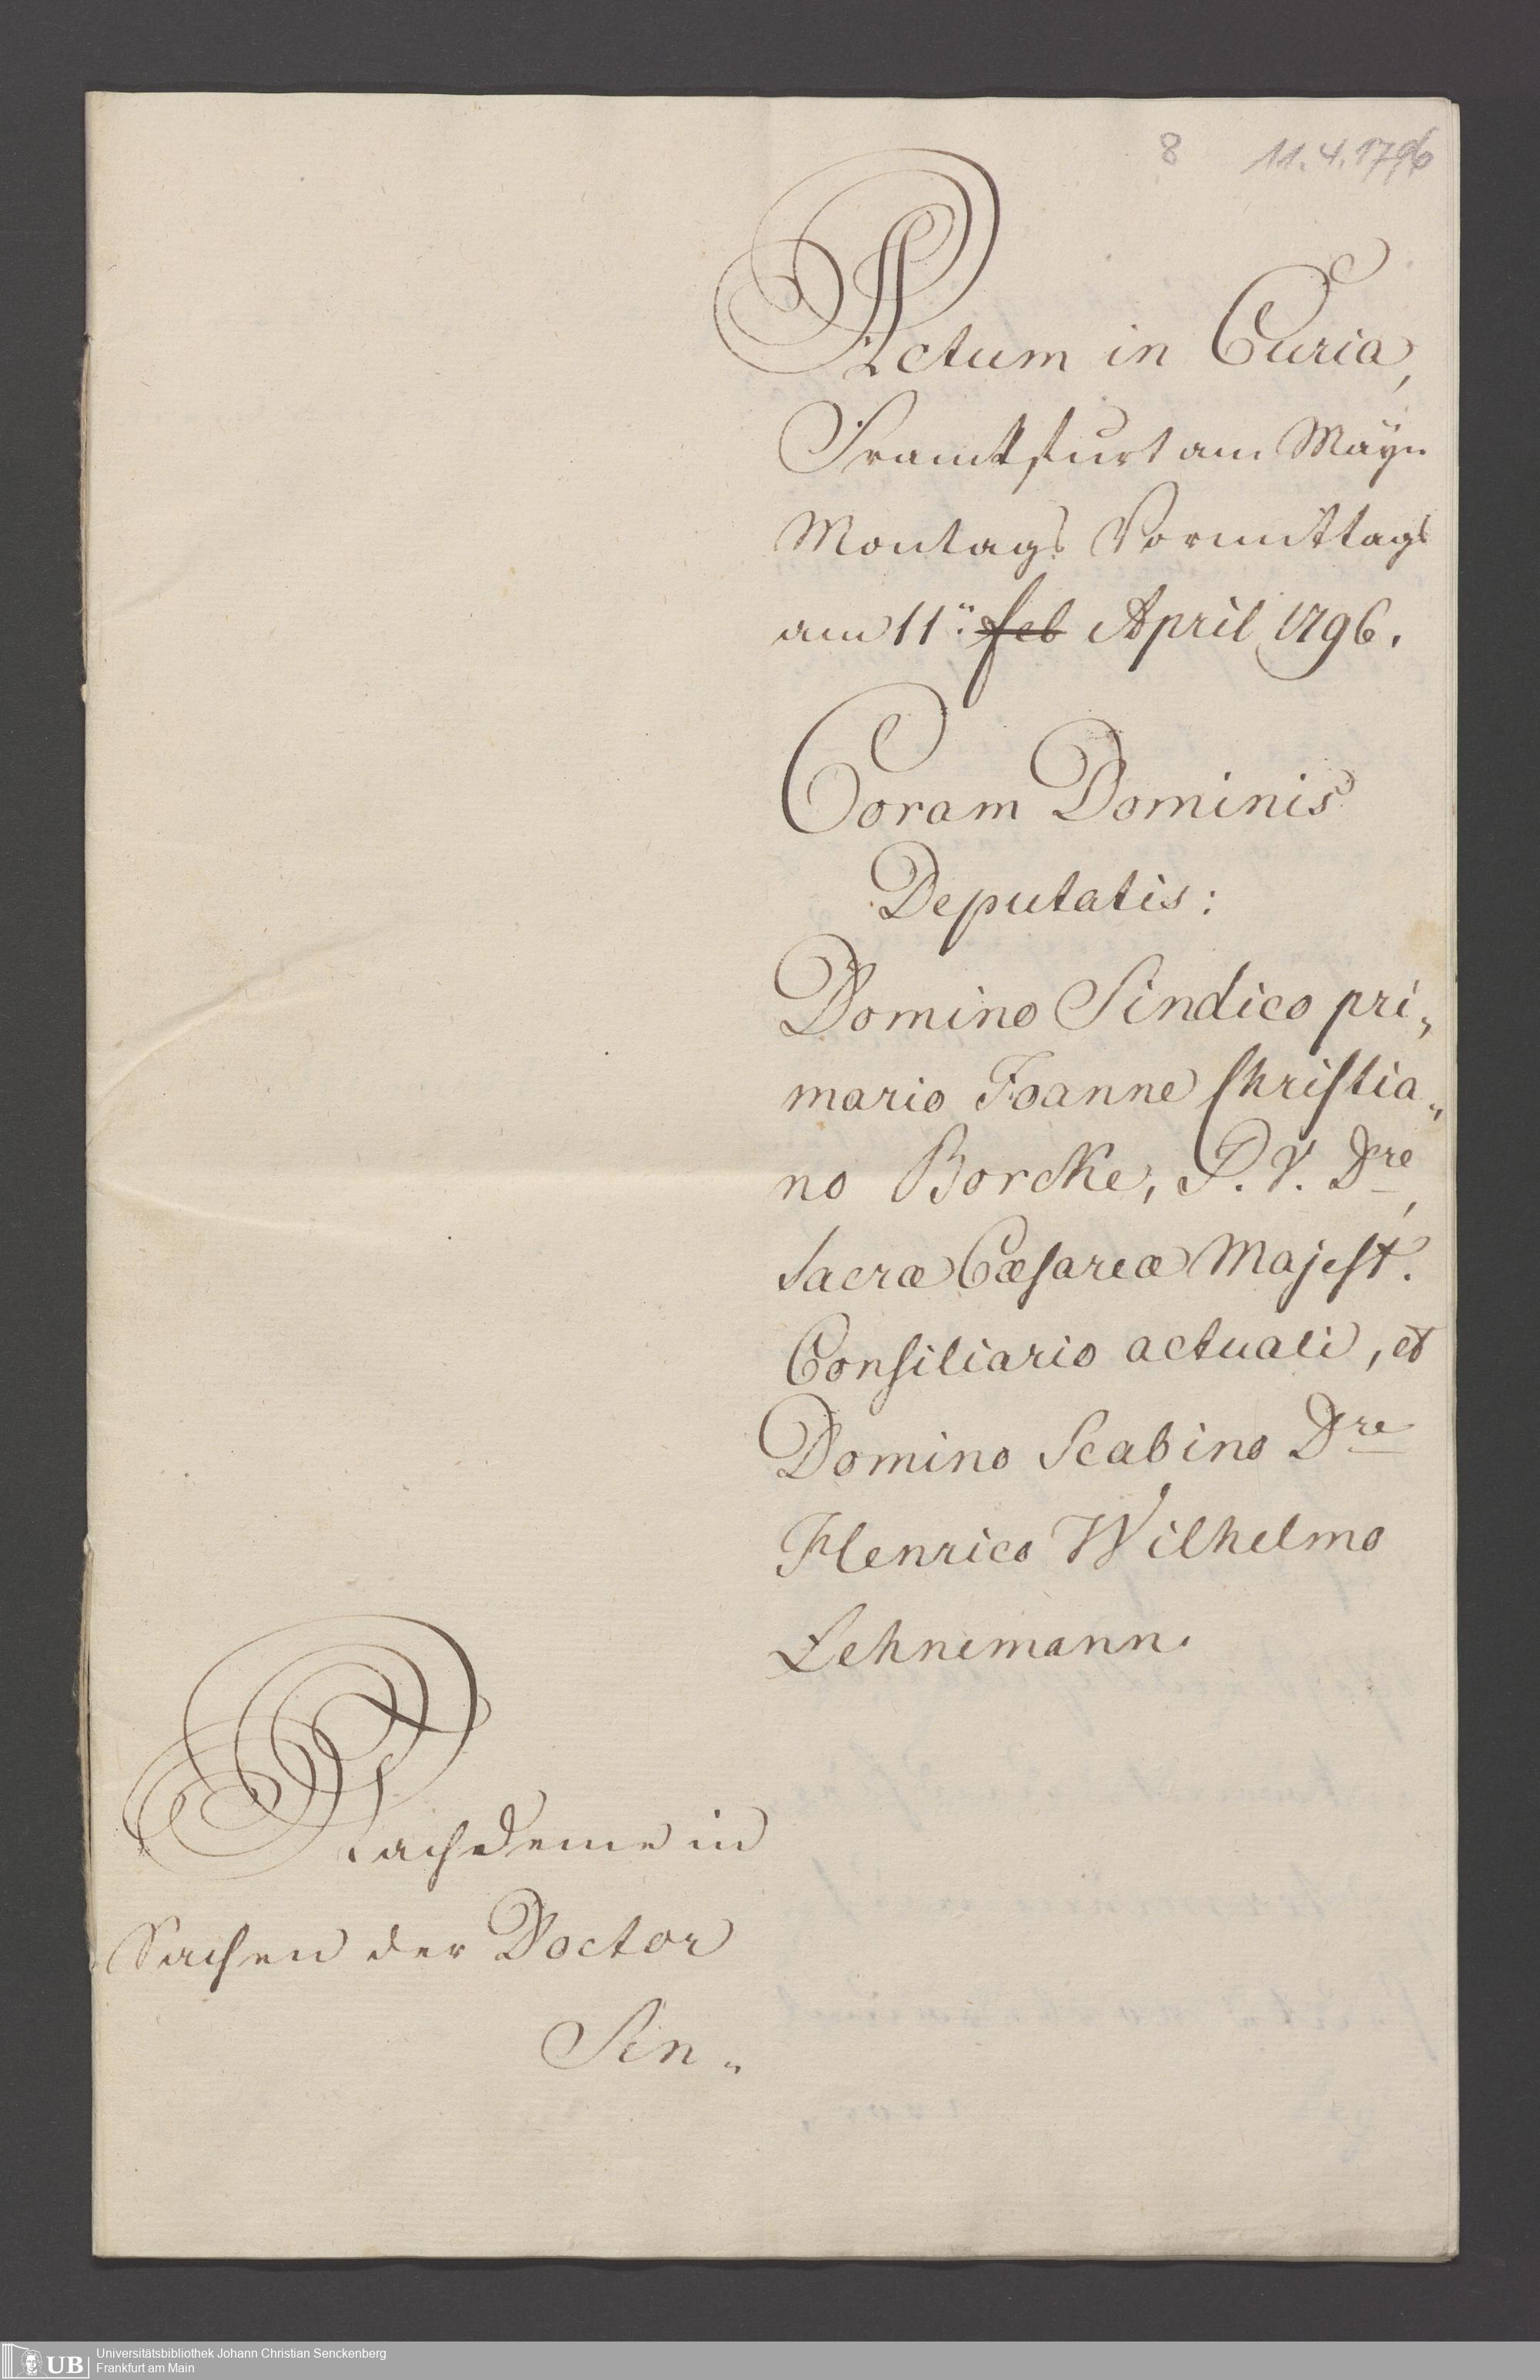 8 11.4.1796
Actum in Curia,
Franckfurt am Mayn
Montags Vormittags
am 11ten feb April 1796.
Coram Dominis
Deputatis:
Domino Sindico pri„
mario Joanne Christia„
no Borcke, J. V. Dre,
Sacræ Cæsareæ Majest.
Consiliario actuali, et
Domino Scabino Dre
Henrico Wilhelmo
Lehnemann.
Nachdeme in
Sachen der Doctor
Sen„
UB Universitätsbibliothek Johann Christian Senckenberg
Frankfurt am Main